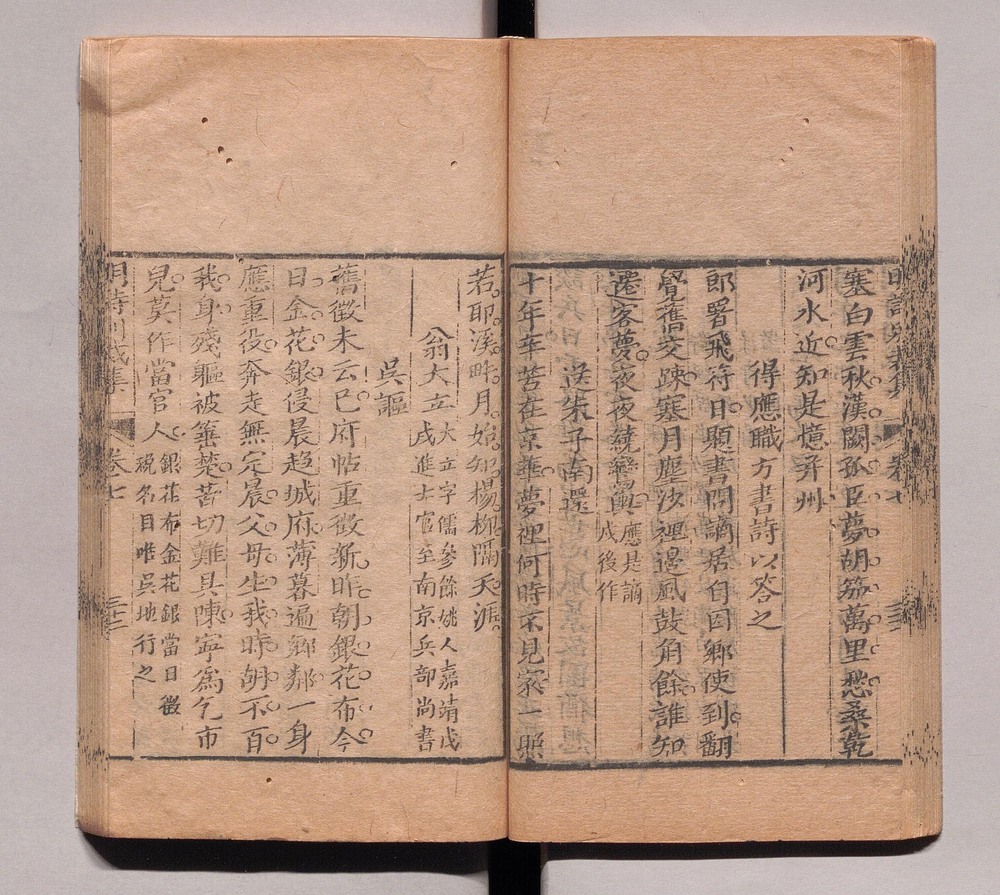 塞白雲秋漢闕孤臣夢胡笳萬里愁桑乾
河水近知是憶并州
得應職方書詩以答之
郎署飛符日題書問謫居自因鄉使到翻
覺舊交踈寒月塵沙裡邊風鼓角餘誰知
遷客夢夜夜繞鑾輿
應是謫
戍後作
送朱子南還
十年辛苦在京華夢裡何時不見家一照
若耶溪畔月始知楊柳隔天涯
翁大立
大立字儒參餘姚人嘉靖戊
戌進士官至南京兵部尚書
吳謳
舊徵未云已府帖重徵新昨朝銀花布今
日金花銀侵晨趋城府薄暮遍鄉鄰一身
應重役奔走無定晨父母生我時胡不百
我身殘軀被箠楚苦切難具陳寧為乞市
兒莫作當官人
銀花布金花銀當日徵
稅名目唯吳地行之
明詩別裁集
卷七
三十二